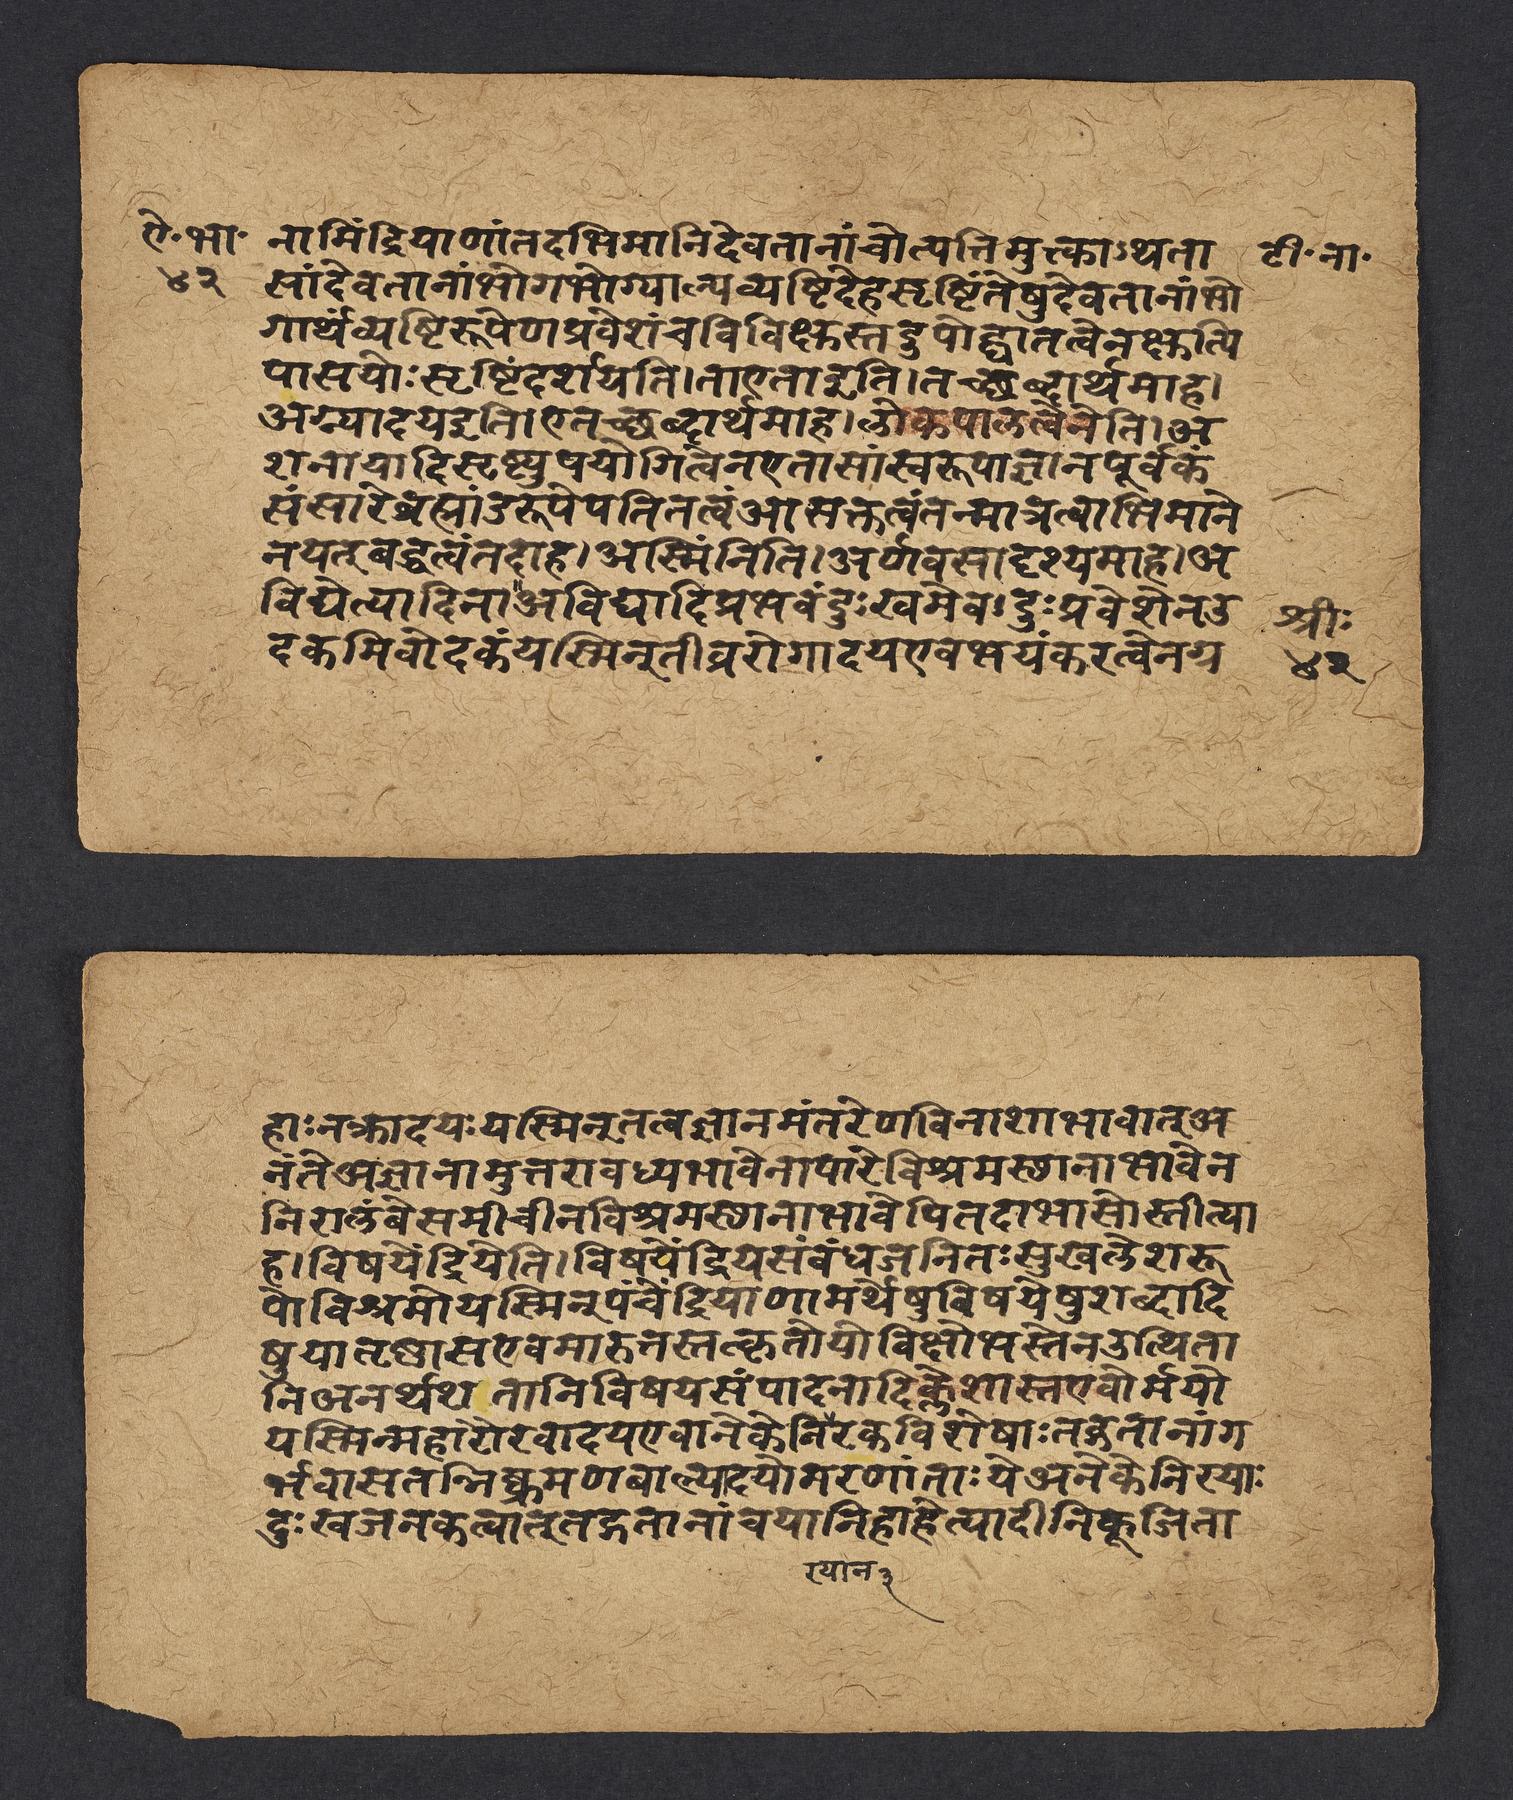 ऐ·भा· नामिंद्रियाणांतदभिमानिदेवतानांचोत्पत्तिमुक्त्काऽथता टी·ना·
४२ सांदेवतानांभोगभोग्याल्पव्यष्टिदेहसृष्टिंतेषुदेवतानांभो
गार्थंव्यष्टिरूपेणप्रवेशंचविविक्षुस्तदुपोद्घातत्वेनक्षुत्पि
पासयोःसृष्टिंदर्शयति।ताएताइति।तच्छब्दार्थमाह।
अग्न्यादयइति।एतच्छब्दार्थमाह।लोकपालत्वेनेति।अ
शनायादिसृष्ट्युपयोगित्वेनएतासांस्वरूपाज्ञानपूर्वकं
संसारेब्रह्मांडरूपेपतितत्वंआसक्तत्वंतन्मात्रत्वाभिमाने
नयत्बद्धत्वंतदाह।अस्मिंनिति।अर्णवसादृश्यमाह।अ
विद्येत्यादिना"अविद्यादिप्रभवंदुःखमेव।दुःप्रवेशेनउ श्रीः
दकमिवोदकंयस्मिन्तीव्ररोगादयएवभयंकरत्वेनग्र ४२
हाःनक्रादयःयस्मिन्तत्वज्ञानमंतरेणविनाशाभावात्अ
नंतेअज्ञानामुत्तरावध्यभावेनापारेविश्रमस्थानाभावेन
निरालंबेसमीचीनविश्रमस्थानाभावेपितदाभासोस्तीत्या
ह।विषयेंद्रियेति।विषयेंद्रियसंबंधजनितःसुखलेशरू
पोविश्रमोयस्मिन्पंचेंद्रियाणामर्थेषुविषयेषुशब्दादि
षुयातृष्णासएवमारुतस्तत्कृतोयोविक्षोभस्तेनउत्थिता
निअनर्थश तानिविषयसंपादनादिक्लेशास्तएवोर्मयो
यस्मिन्महारोरवादयएवानेकेनिरकविशेषाःतद्गतानांग
र्भवासतन्निष्क्रमणबाल्यादयोमरणांताःयेअनेकेनिरयाः
दुःखजनकत्वात्तद्गतानांचयानिहाहेत्यादीनिकूजिता
रयान३